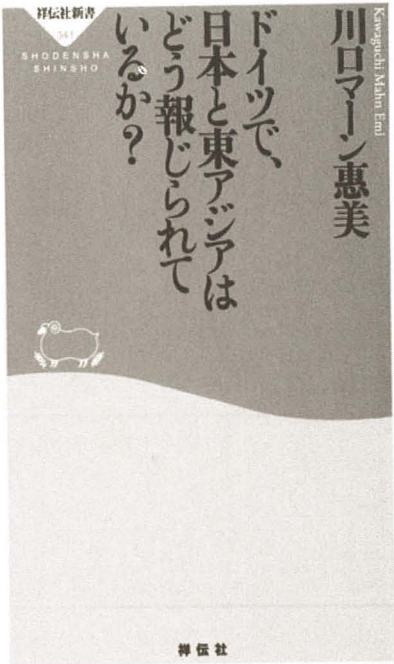 祥伝社新書
343
SHODENSHA
SHINSHO
Kawaguchi Mahn Emi
川口マーン惠美
ドイツで、
日本と東アジアは
どう報じられて
いるか？
祥伝社